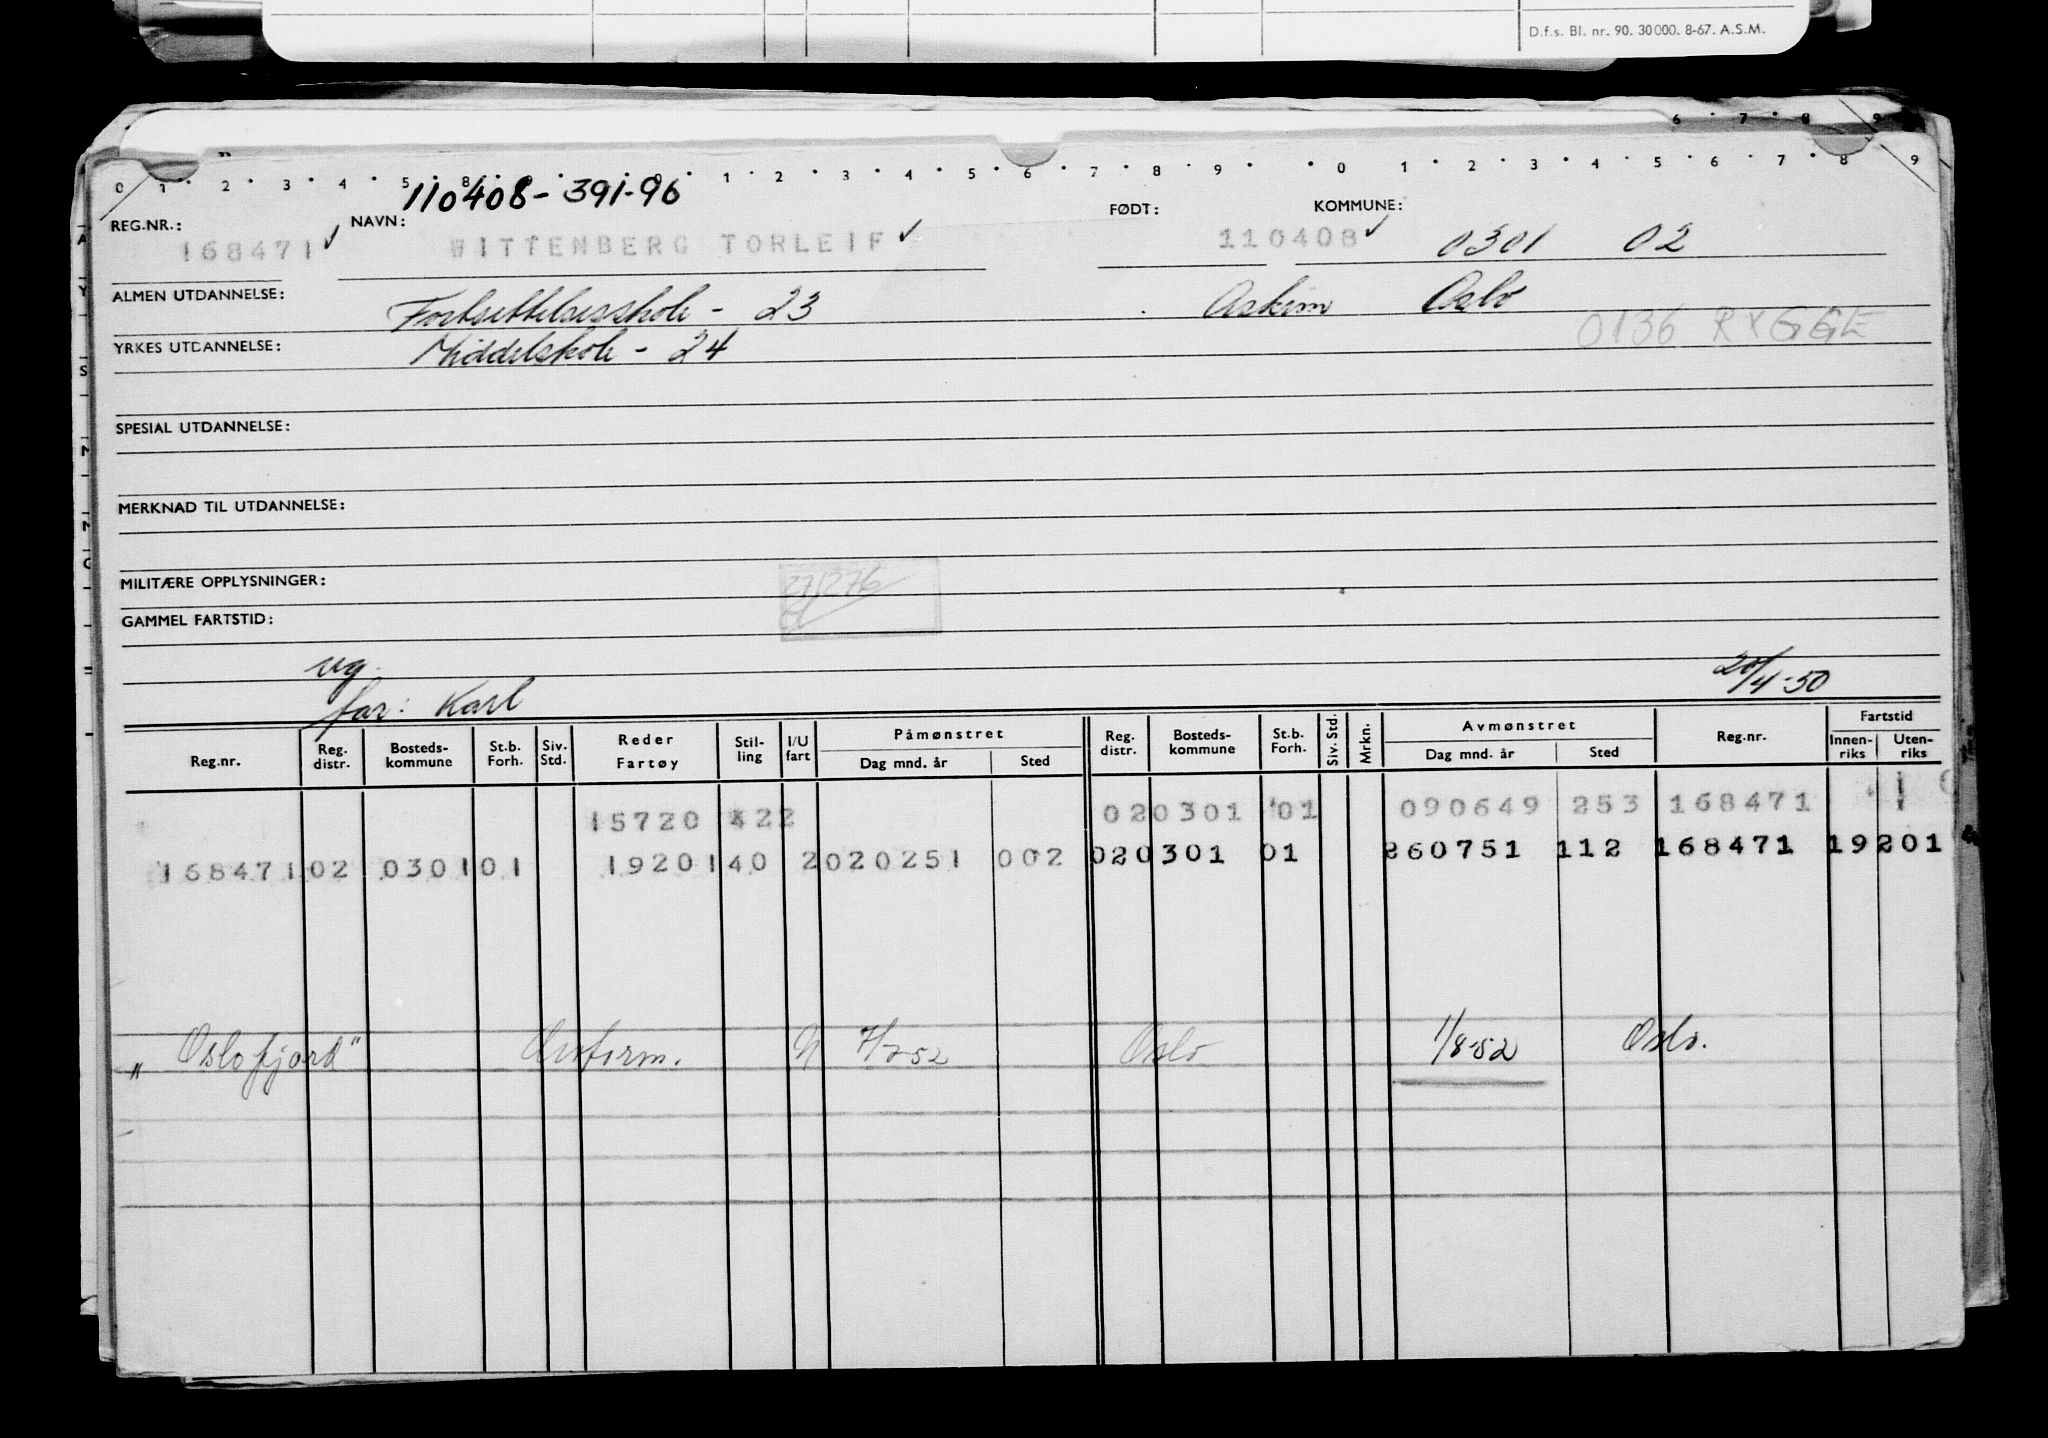 D.f.s. Bl. nr. 90. 30000. 8-67. A.S.M.
6 7 8 9
0 1 2 3 4 5 8 0 1 2 3 4 5 6 7 8 9 0 1 2 3 4 5 6 7 8 9
110408-391-96
REG.NR.: NAVN: FØDT: KOMMUNE:
168471✓ WITTENBERG TORLEIF✓ 110408✓ 0301 02
ALMEN UTDANNELSE: Fortsettelsesskole - 23 Askim Oslo
0136 RYGGE
YRKES UTDANNELSE: Middelskole - 24
SPESIAL UTDANNELSE:
MERKNAD TIL UTDANNELSE:
MILITÆRE OPPLYSNINGER:
GAMMEL FARTSTID:
ug.
far: Karl /4-50
Reg.nr. Reg. distr. Bosteds- kommune St.b. Forh. Siv. Std. Reder Fartøy Stil- ling I/U fart Påmønstret Dag mnd. år Sted Reg. distr. Bosteds- kommune St.b. Forh. Siv. Std. Mrkn. Avmønstret Dag mnd. år Sted Reg.nr. Fartstid Innen- riks Uten- riks
15720 422 020301 01 090649 253 168471
168471 02 0301 01 19201 40 2 020251 002 020301 01 260751 112 168471 19201
"Oslofjord" U 7/-52 Oslo 1/8-52 Oslo.